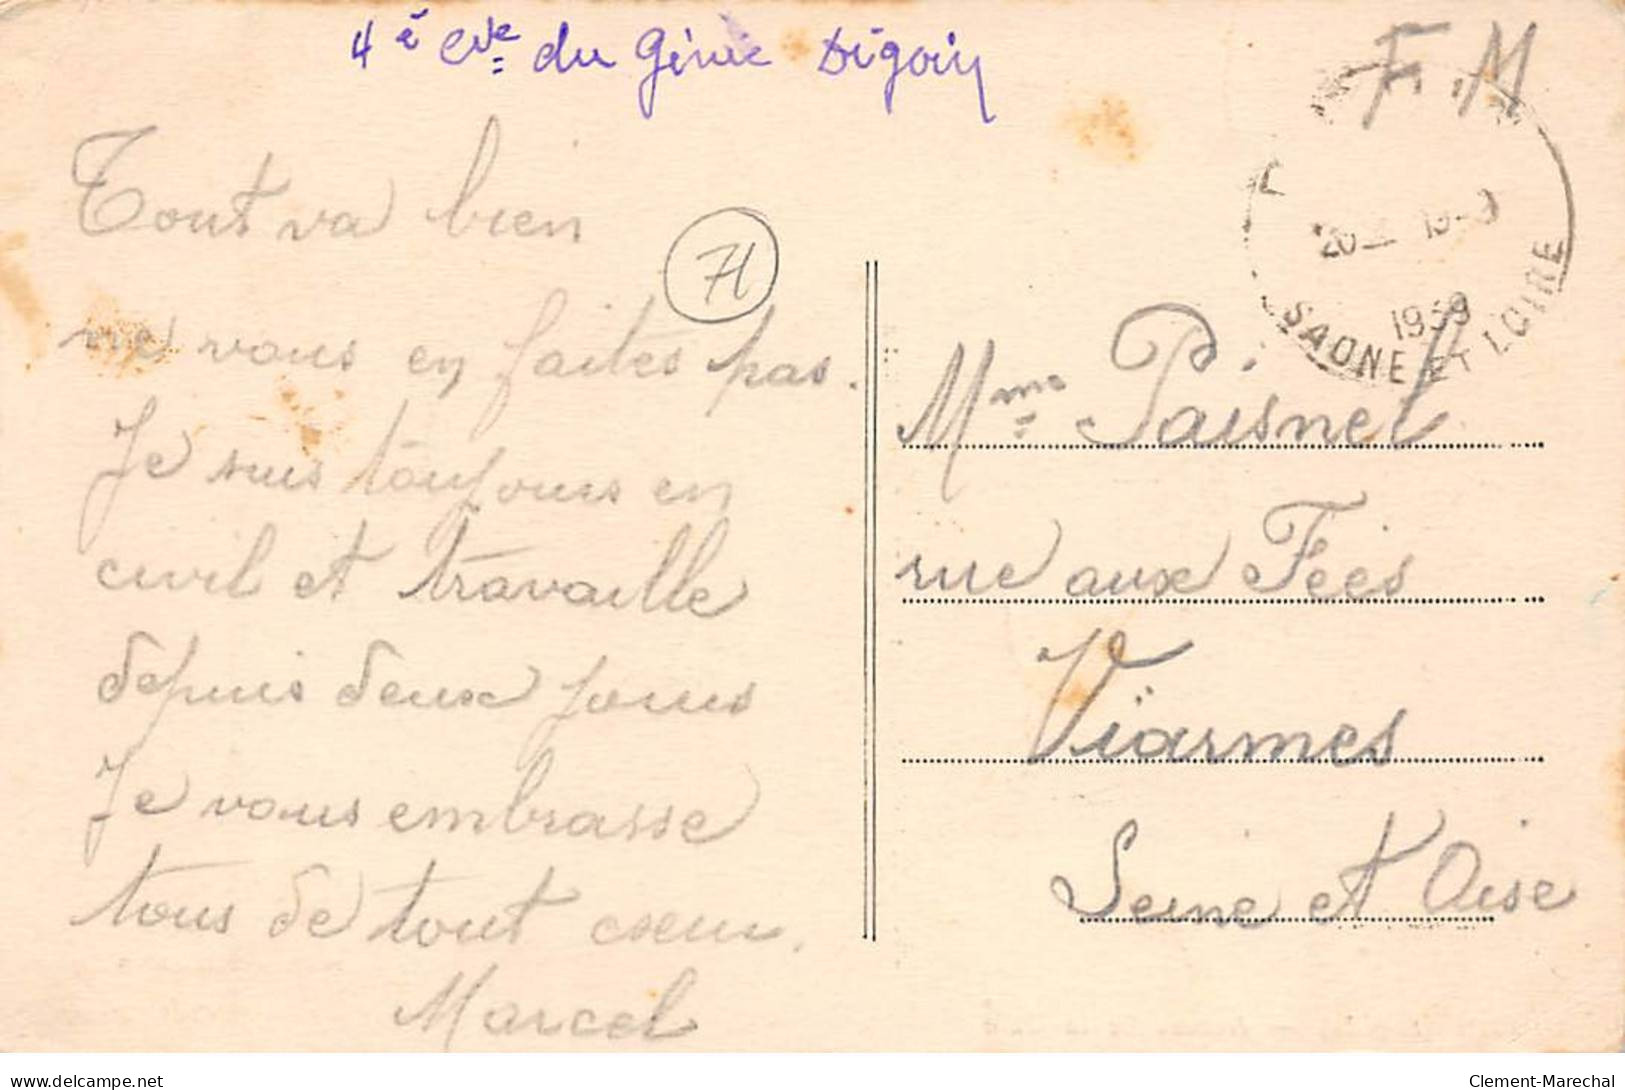 4è Cie du Génie Digoin
F. M
Tout va bien
71
ne vous en faites pas.
Je suis toujours en
civil et travaille
depuis deux jours
Je vous embrasse
tous de tout cœur.
Marcel
1939
SAONE ET LOIRE
Mme Paisnel
rue aux Fées
Viarmes
Seine et Oise
delcampe.net
Clement-Marechal